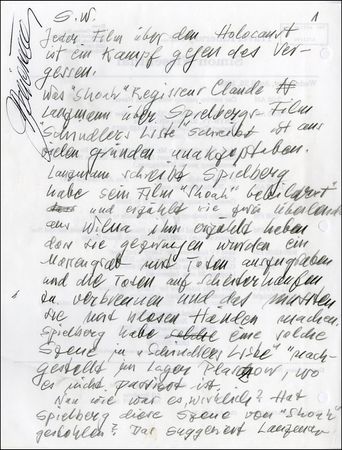 S.W.
1
Jeder Film über den Holocaust
ist ein Kampf gegen das Ver-
gessen.
Was "Shoah" Regisseur Claude
Lanzmann über Spielbergs Film
Schindlers Liste schreibt ist aus
vielen gründen unakzeptabel.
Lanzmann schreibt Spielberg
habe sein Film "Shoah" bebildert"
und erzählt wie zwei Überlende
aus Wilna ihm erzählt haben
dass sie gezwungen wurden ein
Massengrab mit Toten auszugraben
und die Toten auf scheiterhaufen
zu verbrennen und das mussten
sie mit blosen Händen machen.
Spielberg habe eine solche
Szene in "Schindlers Liste" "nach-
gestellt im Lager Plaszow, wo
es nicht passiert ist.
Nun wie war es wirklich? Hat
Spielberg diese Szene von "Shoah"
gestohlen? Das suggeriert Lanzman